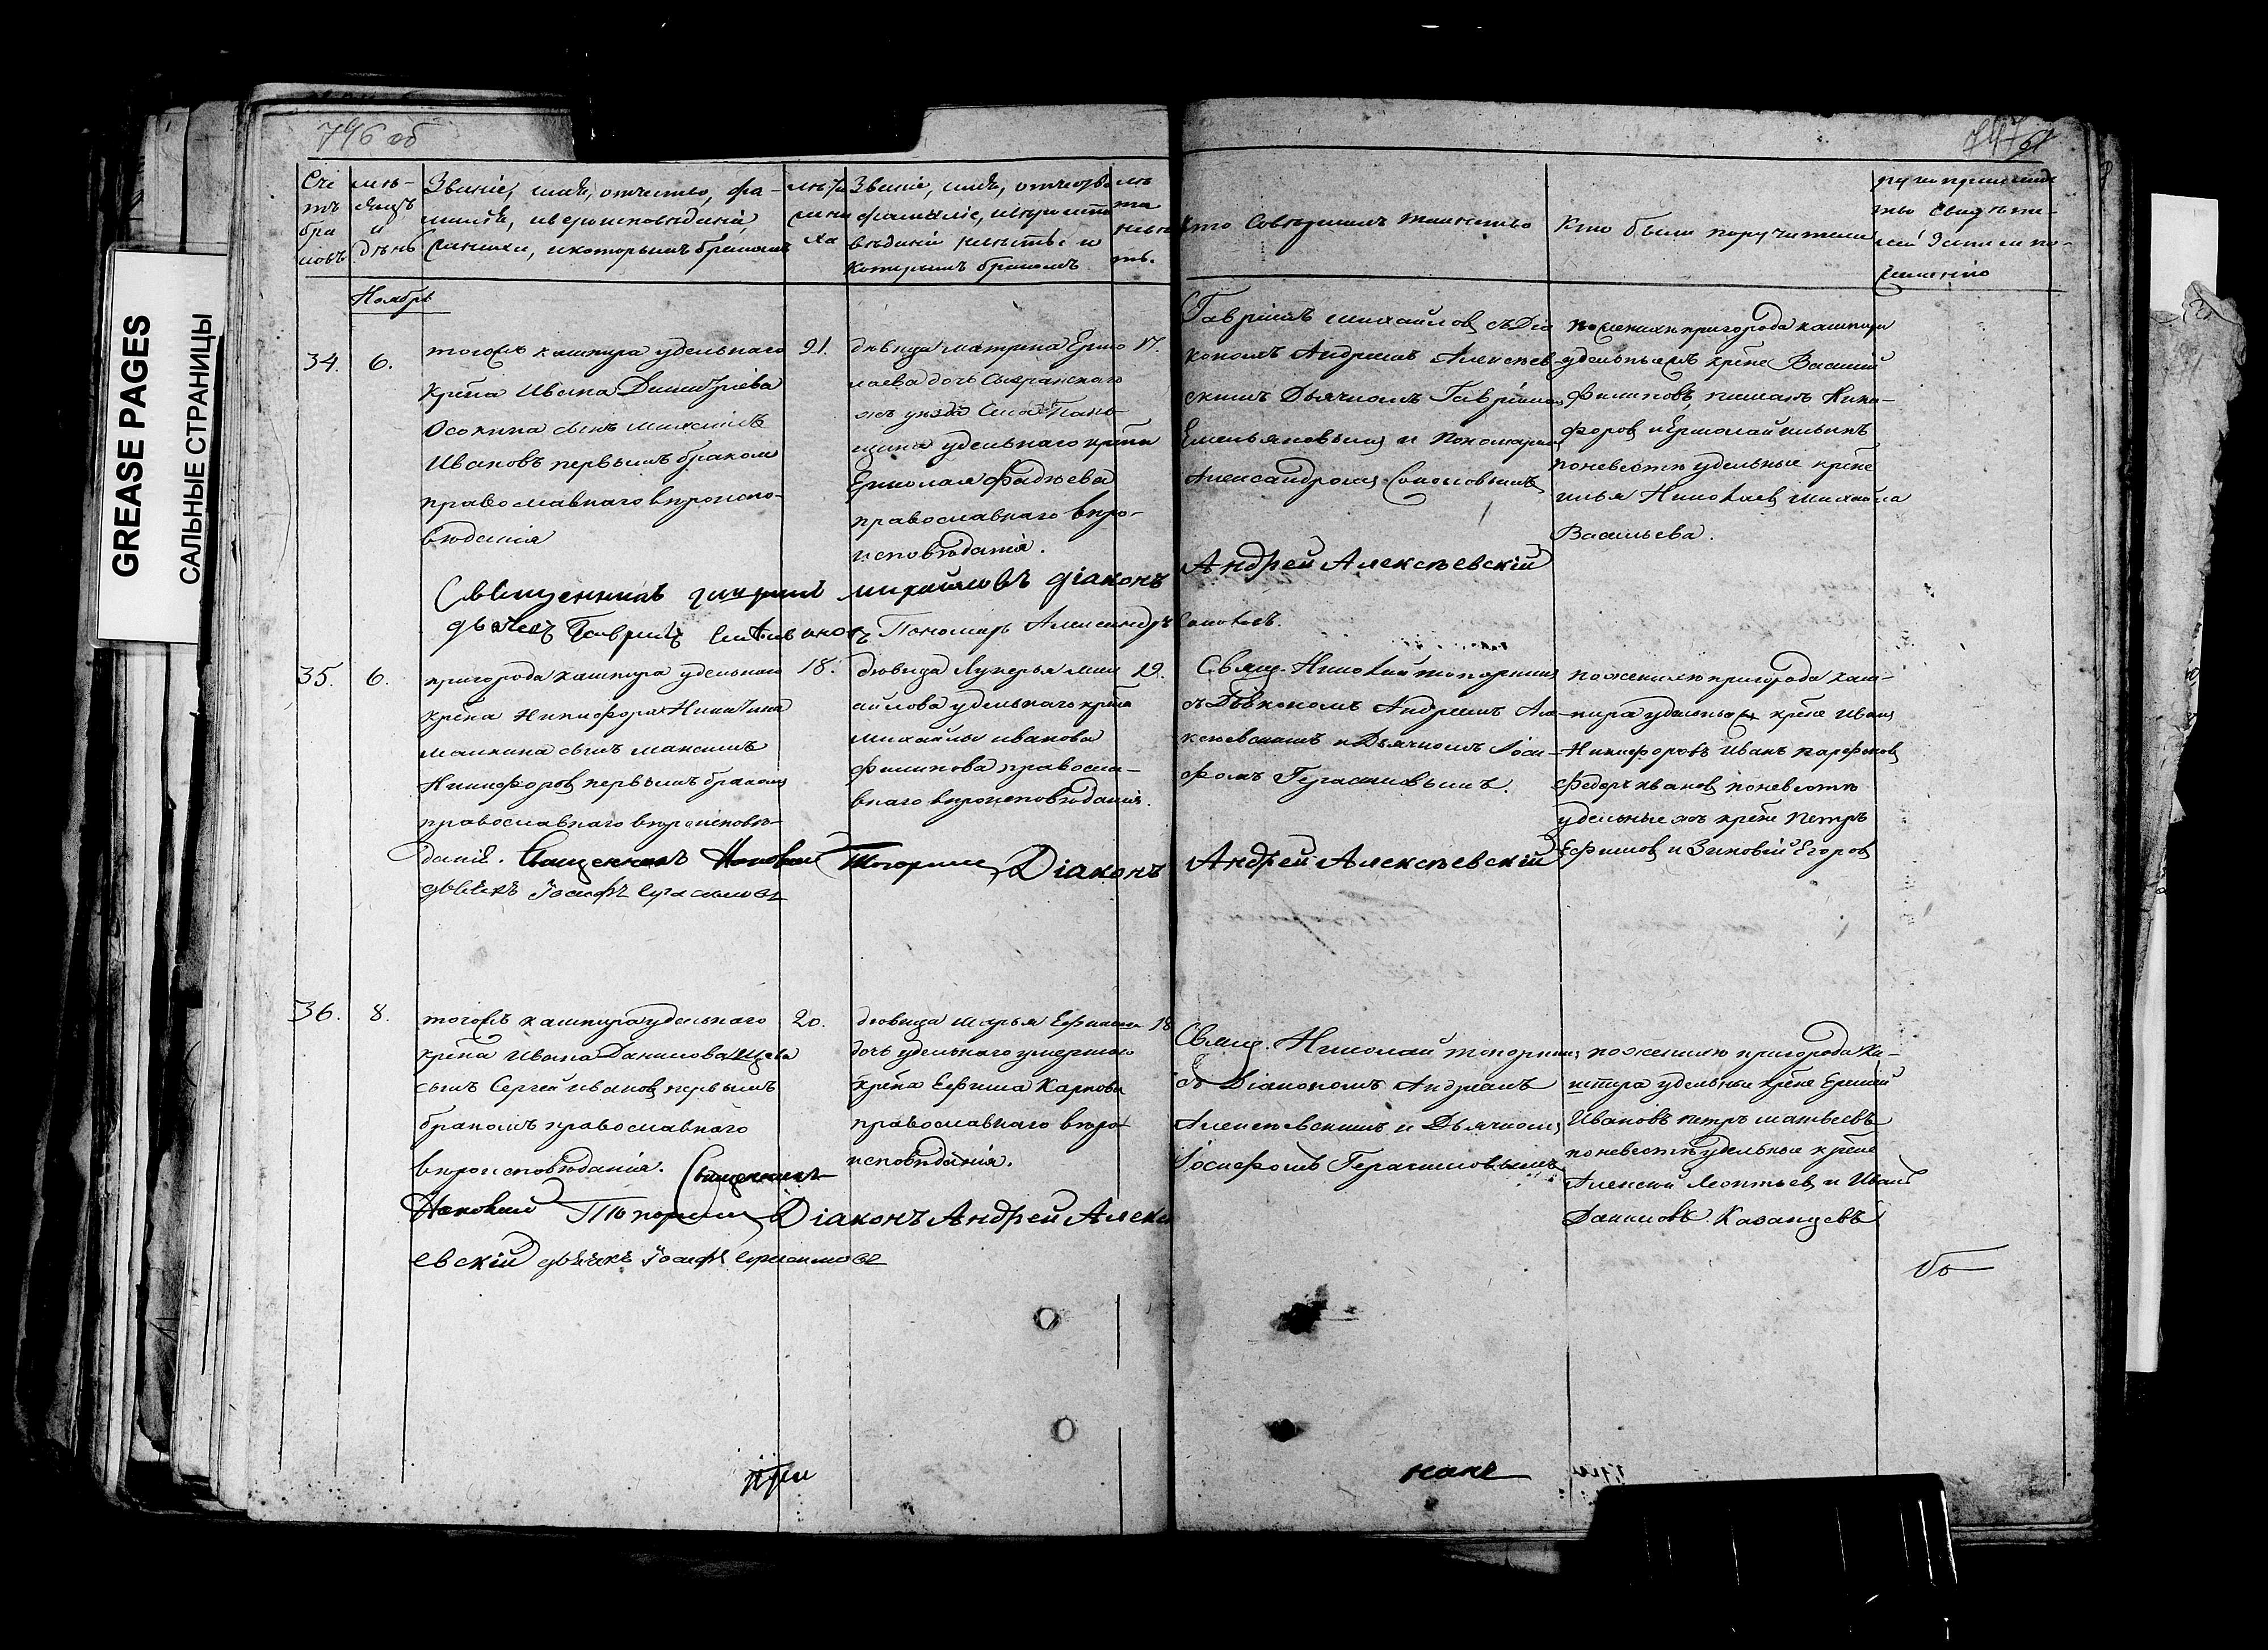 GREASE PAGES
САЛЬНЫЕ СТРАНИЦЫ
746 об
747
Сче
тъ
бра
ковъ
мѣ-
сяцъ
и
день
Званіе, имя, отчество, фа-
милія, и вероисповѣданіе
жениха, и которымъ бракомъ
лѣта
жени
ха
Званіе, имя, отчество
фамилія, и вѣроиспо
вѣданіе невѣсты и
которымъ бракомъ
лѣ
та
невѣ
ты.
Кто совершалъ таинство
Кто были поручители
Ноябрь
34.
6.
тогожъ кашпира удельнаго
крѣпа Ивана Димитріева
Осокина сынъ Максимъ
Ивановъ первымъ бракомъ
православнаго вѣроиспо-
вѣданія
21.
дѣвица Матрена Ермо
лаева дочь Сызранскаго
жъ уѣзда Села Пань-
щина удельнаго крѣпа
Ермолая Фадѣева
православнаго вѣро-
исповѣданія.
17.
Гавріилъ Михайловъ съ Діа
кономъ Андреемъ Алексѣев-
скимъ Дьячкомъ Гавріиломъ
Емельяновымъ и Пономаремъ
Александромъ Соколовымъ
по женихѣ пригорода кашпира
удельные крѣпе Василій
Филиповъ, Ники-
форовъ и Ермолай Ильинъ
по невесте удельные крѣпе
Илья Николаевъ Михайла
Васильева.
Священникъ Гавріилъ Михайловъ Діаконъ Андрей Алексѣевскій
дьячекъ Гавріилъ Емельяновъ Пономарь Александръ Соколовъ.
35.
6.
пригорода кашпира удельнаго
крѣпа Никифора Никитина
Малкина сынъ Максимъ
Никифоровъ первымъ бракомъ
православнаго вѣроисповѣ-
данія.
18.
дѣвица Лукерья Мих
айлова удельнаго крѣпа
Михайлы Иванова
Филипова правосла-
внаго вѣроисповѣданія.
19.
Свящ. Николай Топорнинъ
съ Діакономъ Андреемъ Але-
ксѣевскимъ и Дьячкомъ Іоси-
фомъ Герасимовымъ.
по женихѣ пригорода каш-
пира удельные крѣпе Иванъ
Никифоровъ Иванъ Парфеновъ
Федоръ Ивановъ по невесте
удельные жъ крѣпе Петръ
Ефимовъ и Зиновій Егоровъ
Священникъ Николай Топорнинъ Діаконъ Андрей Алексѣевскій
дьячекъ Іосифъ Герасимовъ
36.
8.
тогожъ кашпира удельнаго
крѣпа Ивана Данилова
сынъ Сергей Ивановъ первымъ
бракомъ православнаго
вѣроисповѣданія.
20.
дѣвица Марья Ефимова
дочь удельнаго умершаго
крѣпа Ефима Карпова
православнаго вѣро-
исповѣданія.
18
Свящ. Николай Топорнинъ
съ Діакономъ Андреемъ
Алексѣевскимъ и Дьячкомъ
Іосифомъ Герасимовымъ
по женихѣ пригорода Ка-
шпира удельные крѣпе
Ивановъ Петръ Матвеевъ
по невесте удельные крѣпе
Алексей Леонтьевъ и Иванъ
Даниловъ Казанцевъ
Священникъ
Николай Топорнинъ Діаконъ Андрей Алексѣ
евскій дьячекъ Іосифъ Герасимовъ